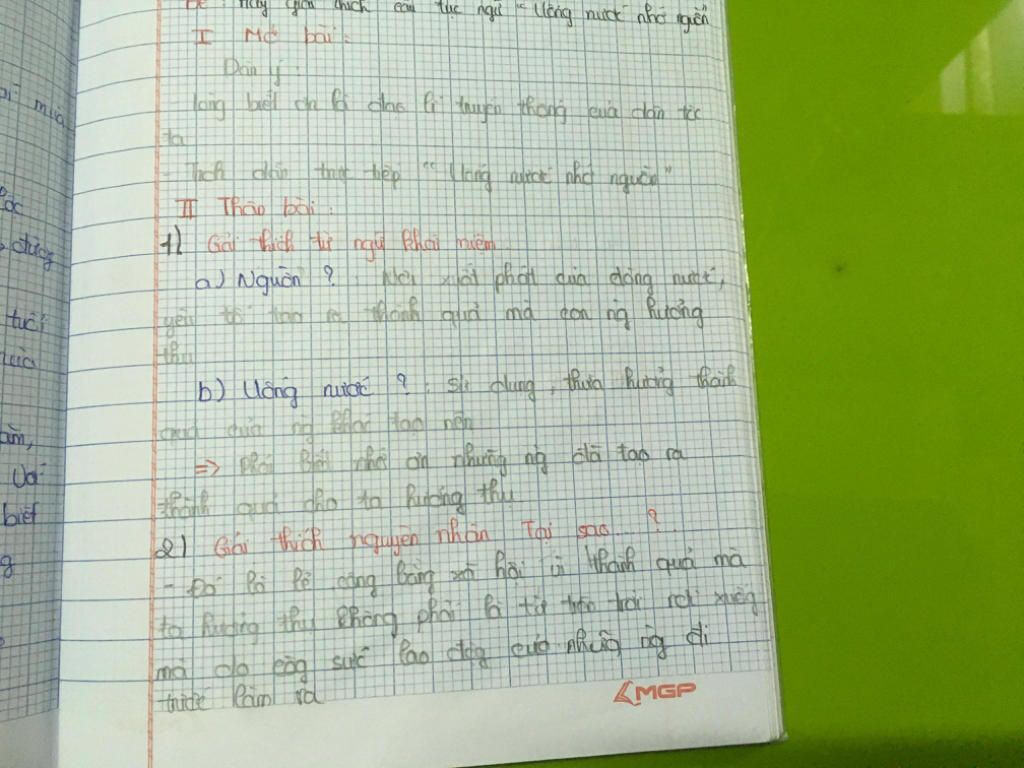 Đề: Hãy giải thích câu tục ngữ "Uống nước nhớ nguồn
I Mở bài:
Dàn ý:
- lòng biết ơn là đạo lí truyền thống của dân tộc
ta
- Trích dẫn trực tiếp "Uống nước nhớ nguồn"
II Thân bài:
1) Giải thích từ ngữ khái niệm
a) Nguồn ? Nơi xuất phát của dòng nước,
yếu tố tạo ra thành quả mà con ng hưởng
thụ
b) Uống nước ? : sử dụng, thừa hưởng thành
quả của ng khác tạo nên
=> phải biết nhớ ơn những ng đã tạo ra
thành quả cho ta hưởng thụ
2) Giải thích nguyên nhân Tại sao...?
- Đó là lẽ công bằng xã hội vì thành quả mà
ta hưởng thụ không phải là từ trên trời rơi xuống
mà do công sức lao động của những ng đi
trước làm ra
MGP
mùa
đường
tuổi
Với
biết